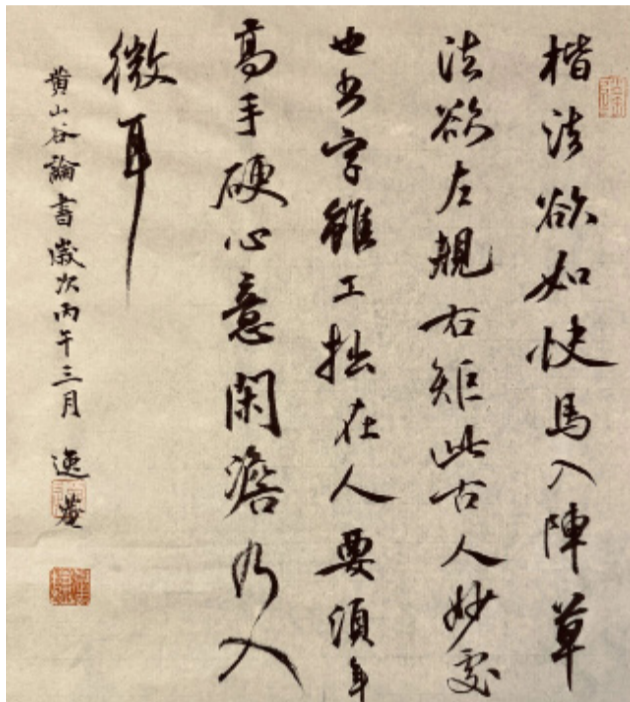 楷法欲如快馬入陣草
法欲左規右矩此古人妙處
也書字雖工拙在人要須年
高手硬心意閑澹乃入
微耳
黄山谷論書歲次丙午三月 逸菴